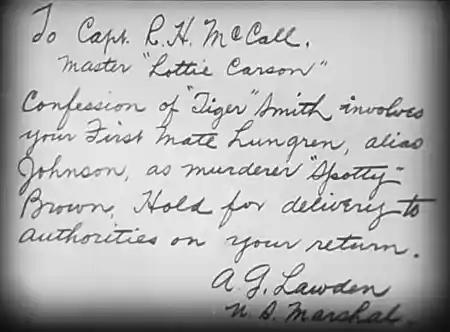 To Capt. R. H. McCall.
Master "Lottie Carson"
Confession of "Tiger" Smith involves
your First Mate Lungren, alias
Johnson, as murderer "Spotty"
Brown, Hold for delivery to
authorities on your return.
A. G. Lawden
U. S. Marshal.